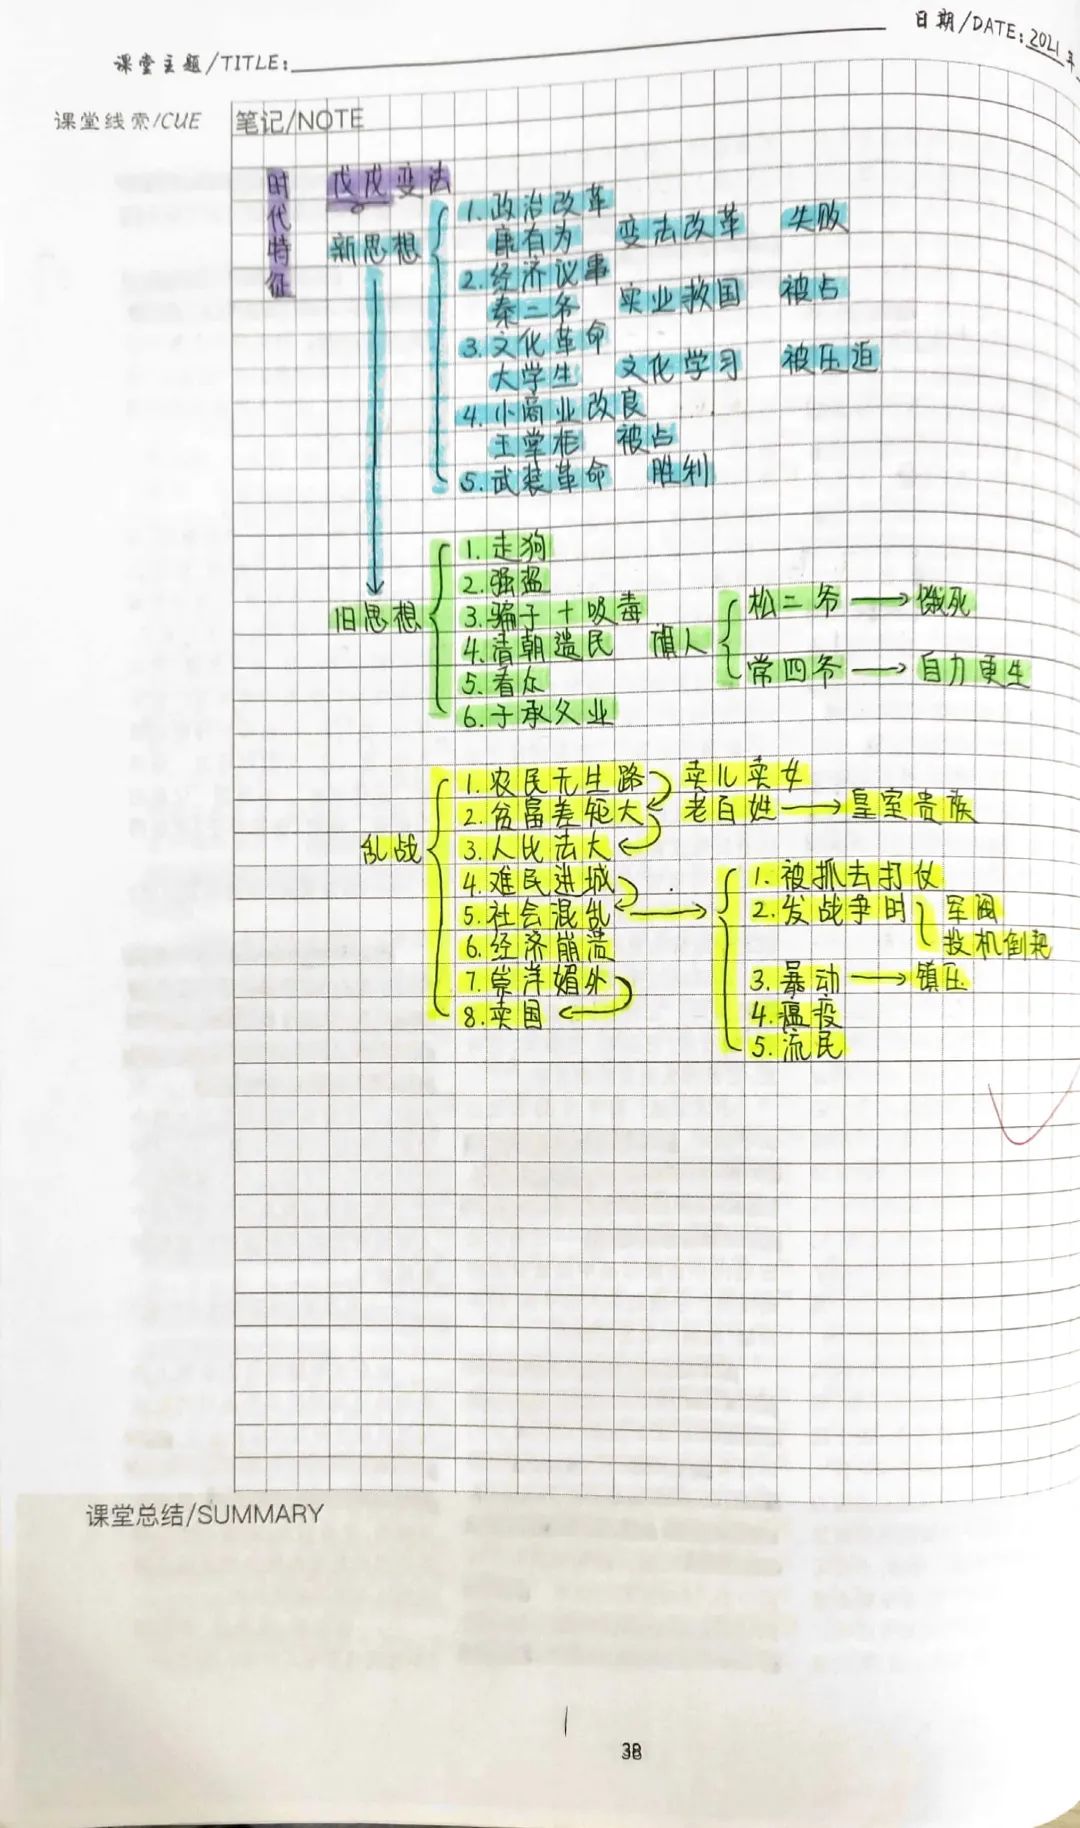 日期/DATE: 2021年
课堂主题/TITLE:
课堂线索/CUE
笔记/NOTE
时代特征
戊戌变法
新思想
1. 政治改革
康有为 变法改革 失败
2. 经济议事
秦二爷 实业救国 被占
3. 文化革命
大学生 文化学习 被压迫
4. 小商业改良
王掌柜 被占
5. 武装革命 胜利
旧思想
1. 走狗
2. 强盗
3. 骗子+吸毒
4. 清朝遗民 旗人
松二爷 → 饿死
常四爷 → 自力更生
5. 看众
6. 子承父业
乱战
1. 农民无生路 卖儿卖女
2. 贫富差距大 老百姓 → 皇室贵族
3. 人比法大
4. 难民进城
5. 社会混乱 →
6. 经济崩溃
7. 崇洋媚外
8. 卖国
1. 被抓去打仗
2. 发战争时 军阀
投机倒把
3. 暴动 → 镇压
4. 瘟役
5. 流民
课堂总结/SUMMARY
38